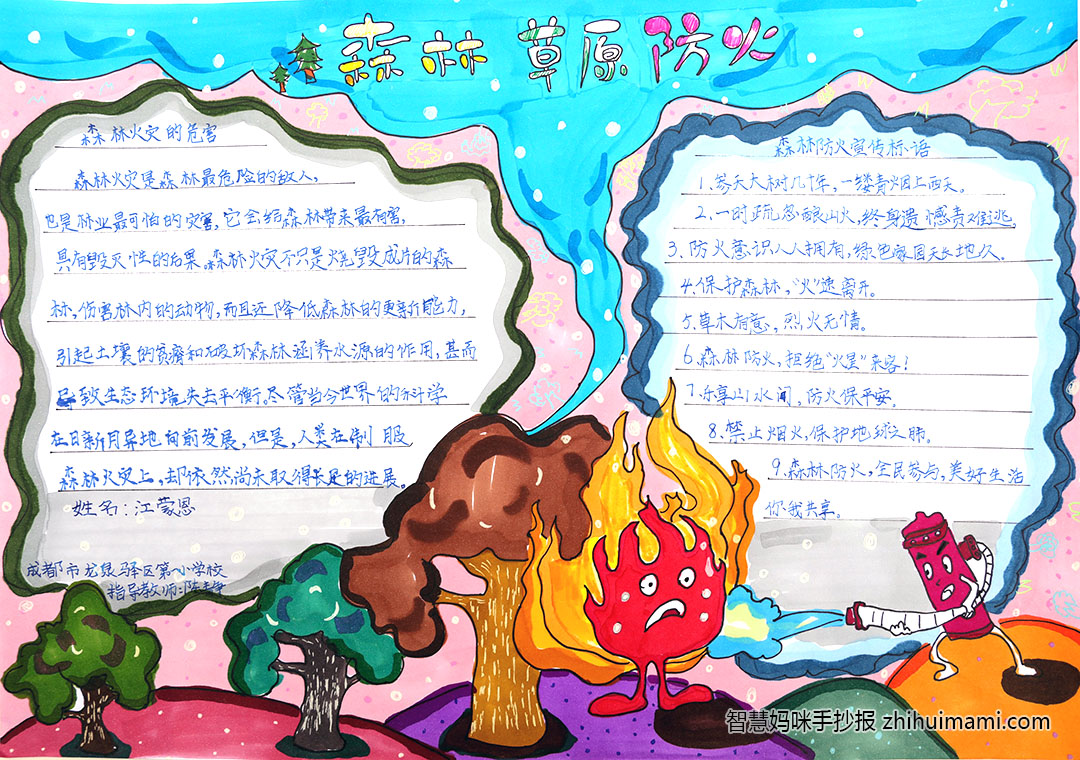 森林草原防火
森林火灾的危害
森林火灾是森林最危险的敌人,
也是林业最可怕的灾害,它会给森林带来最有害,
具有毁灭性的后果。森林火灾不只是烧毁成片的森
林,伤害林内的动物,而且还降低森林的更新能力,
引起土壤的贫瘠和破坏森林涵养水源的作用,甚而
导致生态环境失去平衡。尽管当今世界的科学
在日新月异地向前发展,但是,人类在制服
森林火灾上,却依然尚未取得长足的进展。
姓名:江蒙恩
成都市龙泉驿区第一小学校
指导教师:陈
森林防火宣传标语
1.参天大树几十年,一缕青烟上西天。
2.一时疏忽酿山火,终身遗憾责难逃。
3.防火意识人人拥有,绿色家园天长地久。
4.保护森林,“火”速离开。
5.草木有意,烈火无情。
6.森林防火,拒绝“火星”来客!
7.乐享山水间,防火保平安。
8.禁止烟火,保护地球之肺。
9.森林防火,全民参与,美好生活
你我共享。
智慧妈咪手抄报 zhihuimami.com